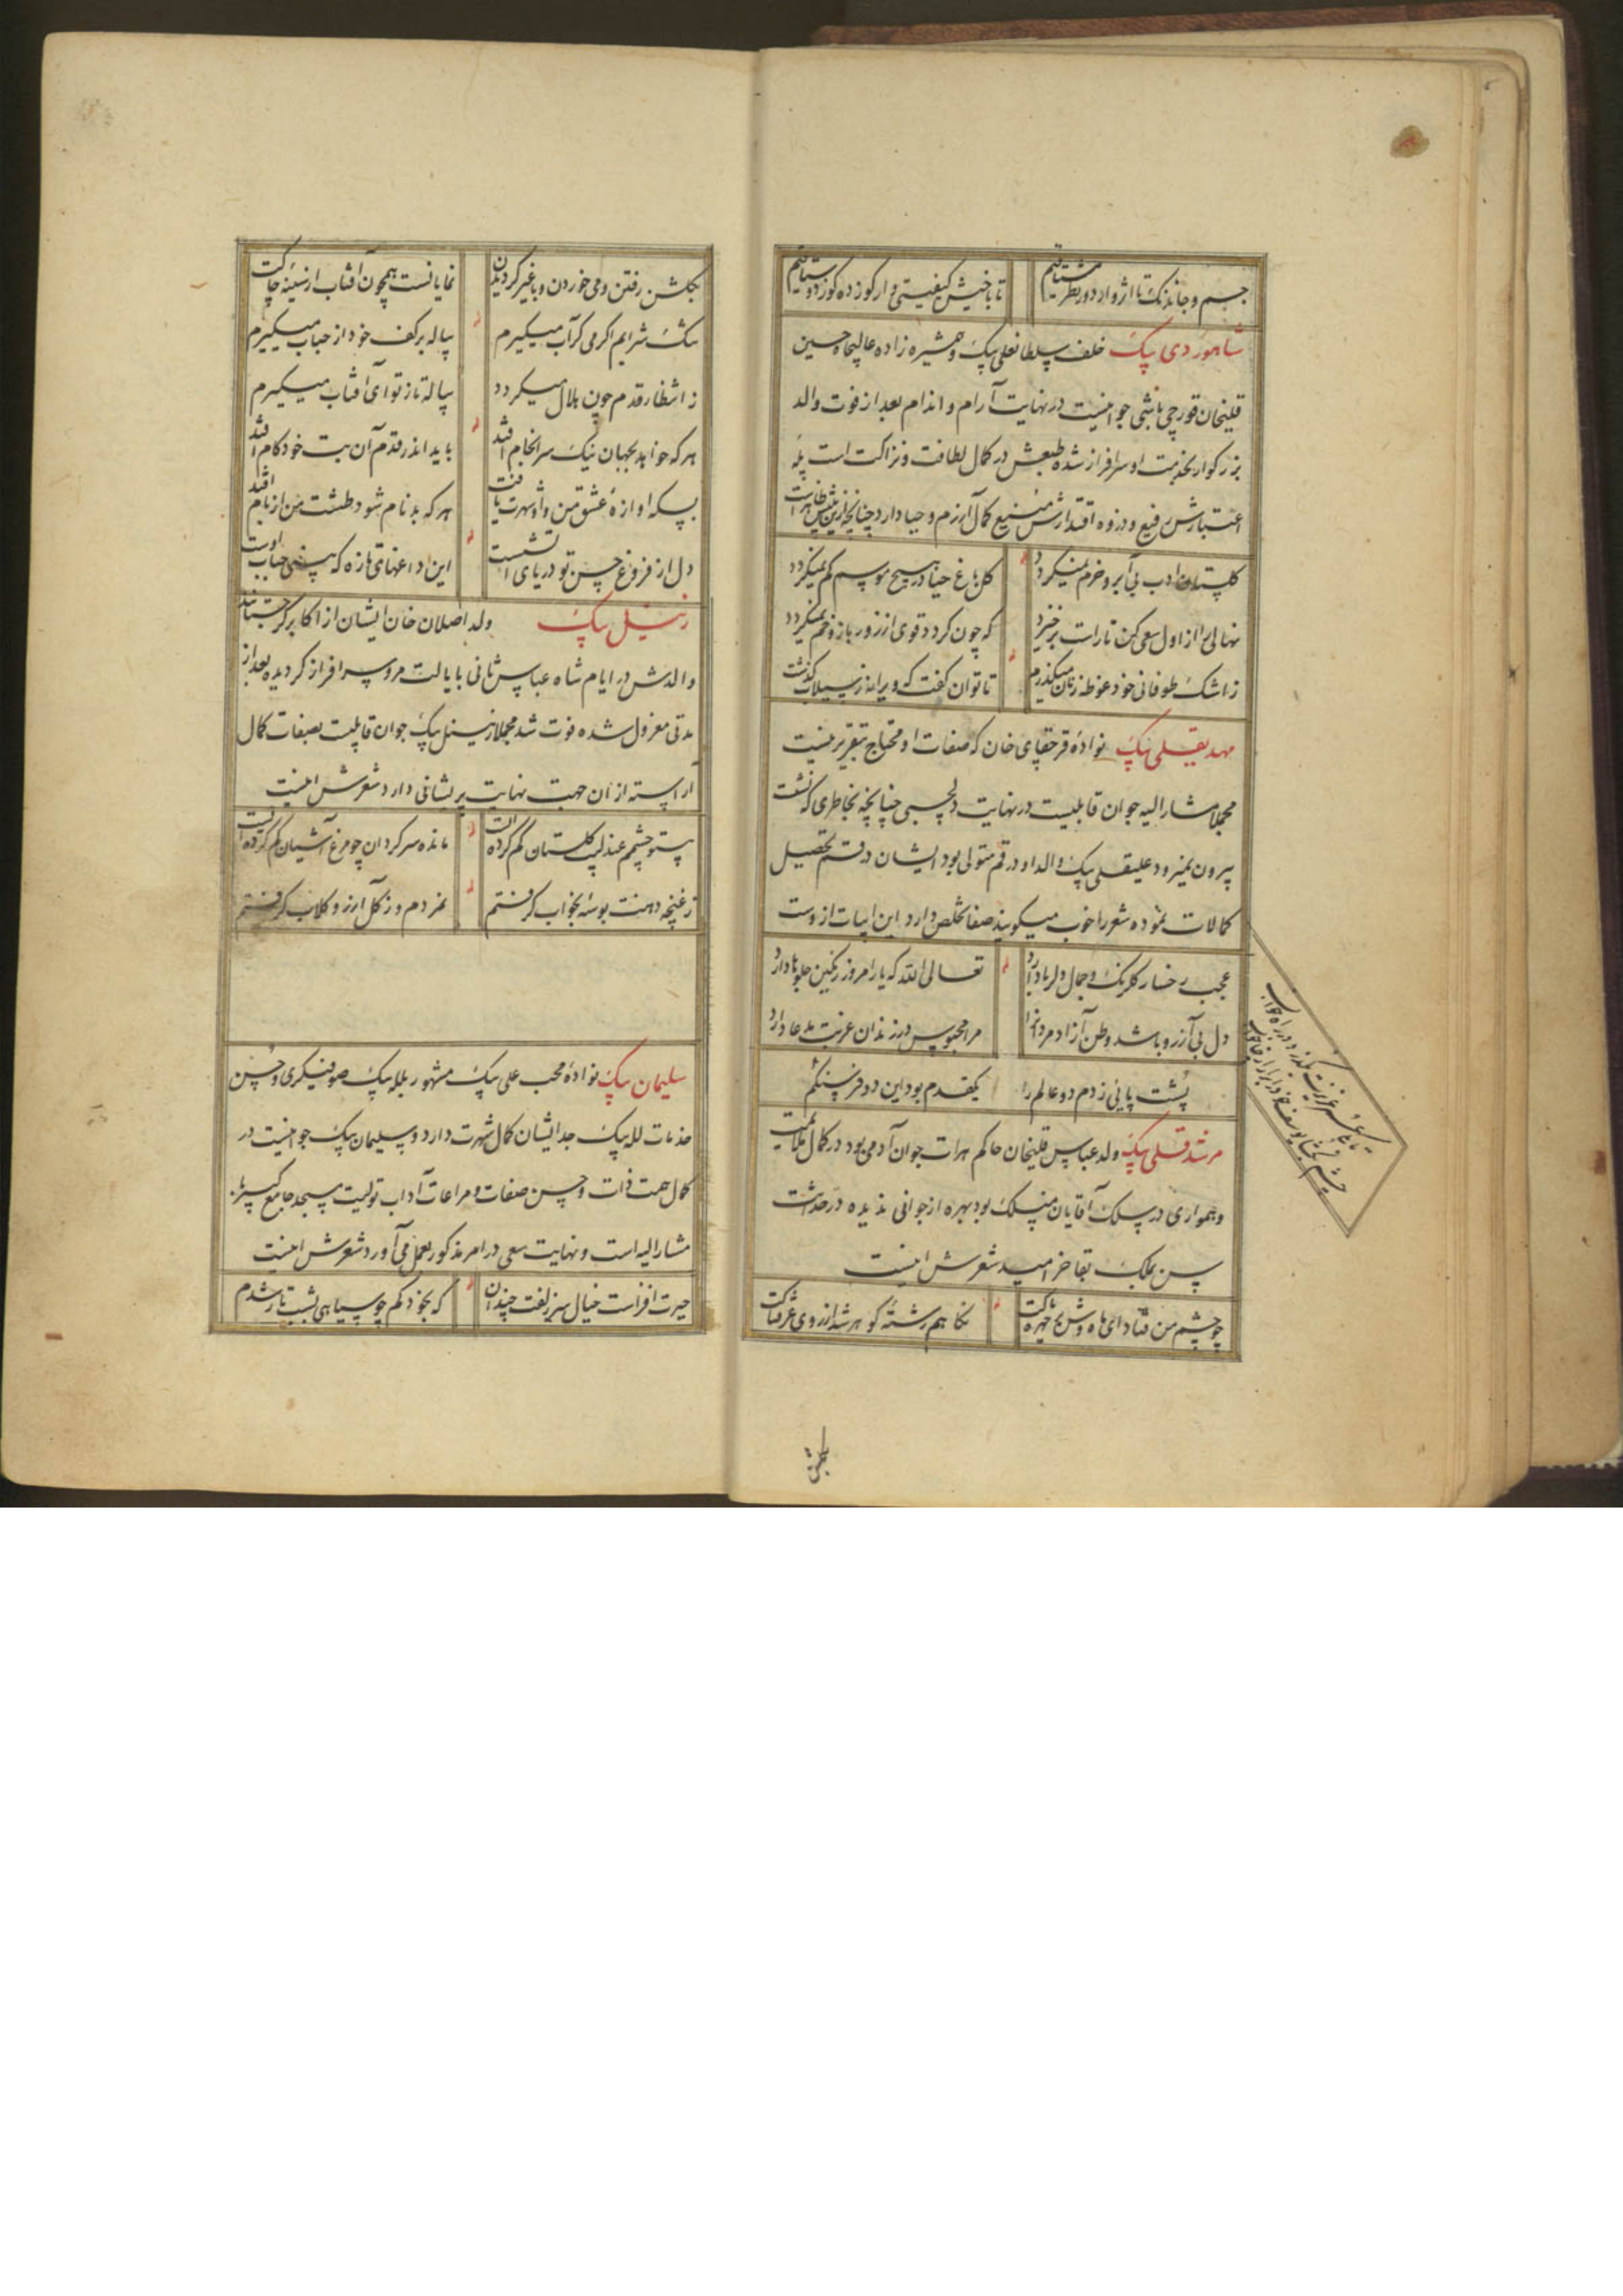 جسم و جاندنک تا اثر وار دور نظر مشتاقیم
تا باخیش کیفیتی وار کوزده کوز دوستاقیم
شاهوردی بیک خلف سلطانعلی بیک و همشیره زاده عالیجاه حسین
قلیخان قورچی باشی جوانیست در نهایت آرام و اندام بعد از فوت والد
بزرکوار بخدمت او سرافراز شده طبعش در کمال لطافت و نزاکت است پله
اعتبارش رفیع و دروه اقتدارش منیع کمال آزرم و حیا دارد چنانچه ازین بیتش ظاهر است
کلستان ادب بی آبرو خرم نمیکردد
کل باغ حیا در هیچ موسم کم نمیکردد
نهالی را از اول سعی کن تا راست برخیزد
که چون کردد قوی از زور بازو خم نمیکردد
ز اشک طوفانی خود غوطه زنان میکذرم
تا توان کفت که ویرانه ز سیلاب کذشت
مهدیقلی بیک نوادهٔ قرچقای خان که صفات او محتاج بتقریر نیست
مجملا مشار الیه جوان قابلیست در نهایت دلچسبی چنانچه بخاطری که نشست
بیرون نمیرود علیقلی بیک والد او در قم متولی بود ایشان در قم تحصیل
کمالات نموده شعر را خوب میکویند صفا تخلص دارد این ابیات ازوست
عجب رخسار کلرنک و جمال دلربا دارد
تعالی الله که یار امروز رنکین جلوها دارد
دل بی آرزو باشد وطن آزاد مردانرا
مرا محبوس در زندان غربت مدعا دارد
پشت پائی زدم دو عالم را
یکقدم بود این دو فرسنکم
مرشدقلی بیک ولد عباس قلیخان حاکم هرات جوان آدمی بود در کمال ملایمت
و همواری در سلک آقایان منسلک بود بهره از جوانی ندیده در حداثت
سن بملک بقا خرامید شعرش اینست
چو چشم من فتاد ای ماه وش بر چهره پاکت
نکاهم رشتهٔ کوهر شد از روی عرقناکت
بکلشن رفتن و می خوردن و با غیر کردیدن
نمایانست همچون آفتاب از سینهٔ چاکت
تنک شرابم اکر می کر آب میکیرم
پیاله بر کف خود از حباب میکیرم
ز انتظار قدم چون هلال میکردد
پیاله تا ز تو ای آفتاب میکیرم
هر که خواهد بجهان نیک سرانجام افتد
باید اندر قدم آن بت خودکام افتد
بسکه اوازهٔ عشق من و او شهرت یافت
هر که بدنام شود طشت من از بام افتد
دل از فروغ حسن تو دریای آتشست
این داغهای تازه که بینی حباب اوست
زینل بیک ولد اصلان خان ایشان از اکابر کرجستانند
والدش در ایام شاه عباس ثانی بایالت مرو سرافراز کردیده بعد از
مدتی معزول شده فوت شد مجملا زینل بیک جوان قابلیست بصفات کمال
آراسته از آن جهت نهایت پریشانی دارد شعرش اینست
بیتو چشمم عندلیب کلستان کم کرده است
مانده سرکردان چو مرغ آشیان کم کرده است
ز غنچه دهنت بوسه بخواب کرفتم
نمردم و ز کل آرزو کلاب کرفتم
سلیمان بیک نوادهٔ محب علی بیک مشهور بلله بیک صوفیکری و حسن
خدمات لله بیک جد ایشان کمال شهرت دارد و سلیمان بیک جوانیست در
کمال همت ذات و حسن صفات و مراعات آداب تولیت مسجد جامع کبیر با
مشار الیه است و نهایت سعی در امر مذکور بعمل می آورد شعرش اینست
حیرت افزاست خیال سر زلفت چندان
که بخود کم چو سیاهی بشب تار شدم